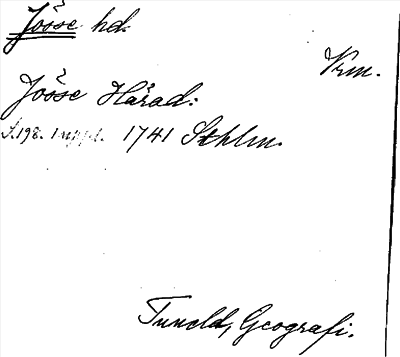 Jösse hd.
Vrm.
Jösse Härad:
s. 198. 1 uppl. 1741 Sthlm.
Tuneld, Geografi.